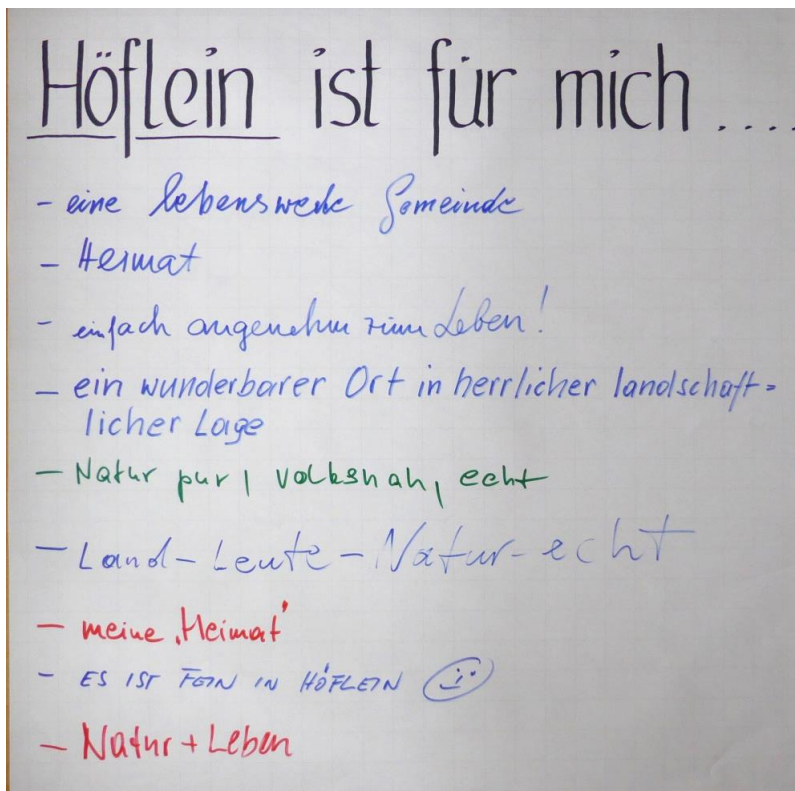 Höflein ist für mich ....
- eine lebenswerte Gemeinde
- Heimat
- einfach angenehm zum Leben!
- ein wunderbarer Ort in herrlicher landschaft=
licher Lage
- Natur pur, volksnah, echt
- Land-Leute-Natur-echt
- meine "Heimat"
- ES IST FEIN IN HÖFLEIN
- Natur + Leben